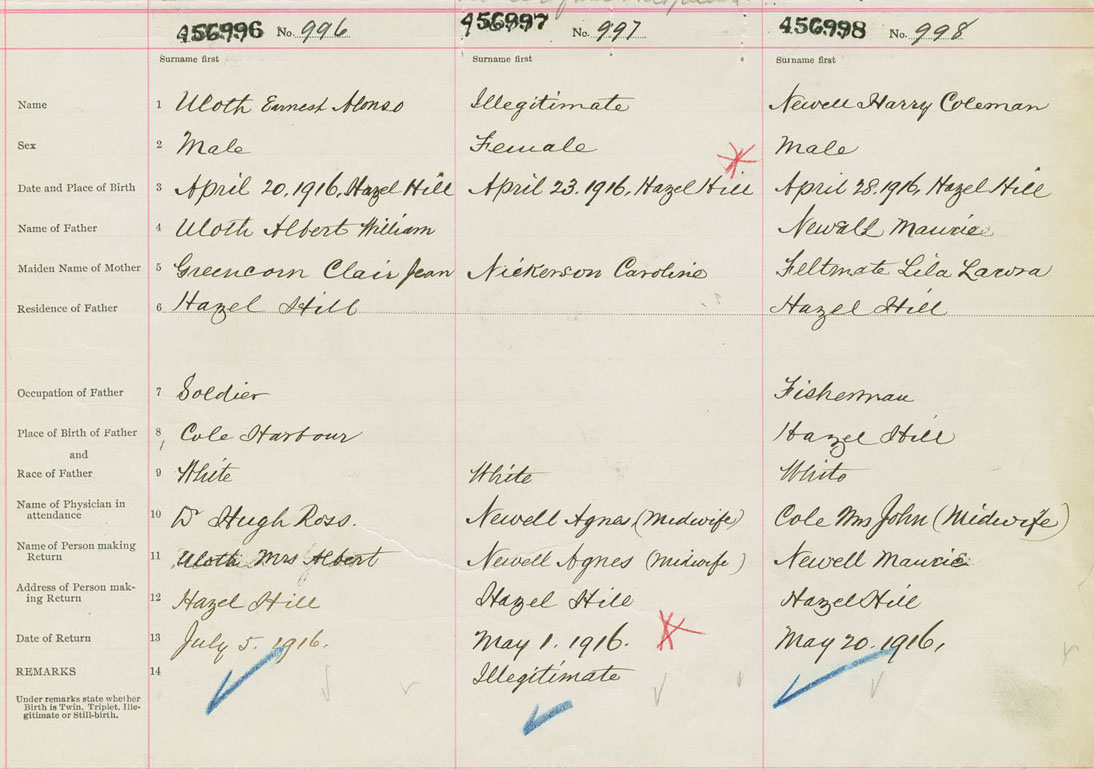 456996 No. 996 456997 No. 997 456998 No. 998
Surname first Surname first Surname first
Name 1 Uloth Earnest Alonso Illegitimate Newell Harry Coleman
Sex 2 Male Female Male
Date and Place of Birth 3 April 20, 1916, Hazel Hill April 23. 1916, Hazel Hill April 28. 1916, Hazel Hill
Name of Father 4 Uloth Albert William Newall Maurice
Maiden Name of Mother 5 Greencorn Clair Jean Nickerson Caroline Feltmate Lila Lawra
Residence of Father 6 Hazel Hill Hazel Hill
Occupation of Father 7 Soldier Fisherman
Place of Birth of Father 8 Cole Harbour Hazel Hill
and
Race of Father 9 White White White
Name of Physician in
attendance 10 Dr Hugh Ross. Newell Agnes (Midwife) Cole Mrs John (Midwife)
Name of Person making
Return 11 Uloth Mrs Albert Newell Agnes (Midwife) Newell Maurice
Address of Person mak-
ing Return 12 Hazel Hill Hazel Hill Hazel Hill
Date of Return 13 July 5. 1916. May 1. 1916. May 20. 1916,
REMARKS 14 Illegitimate
Under remarks state whether
Birth is Twin, Triplet, Ille-
gitimate or Still-birth.